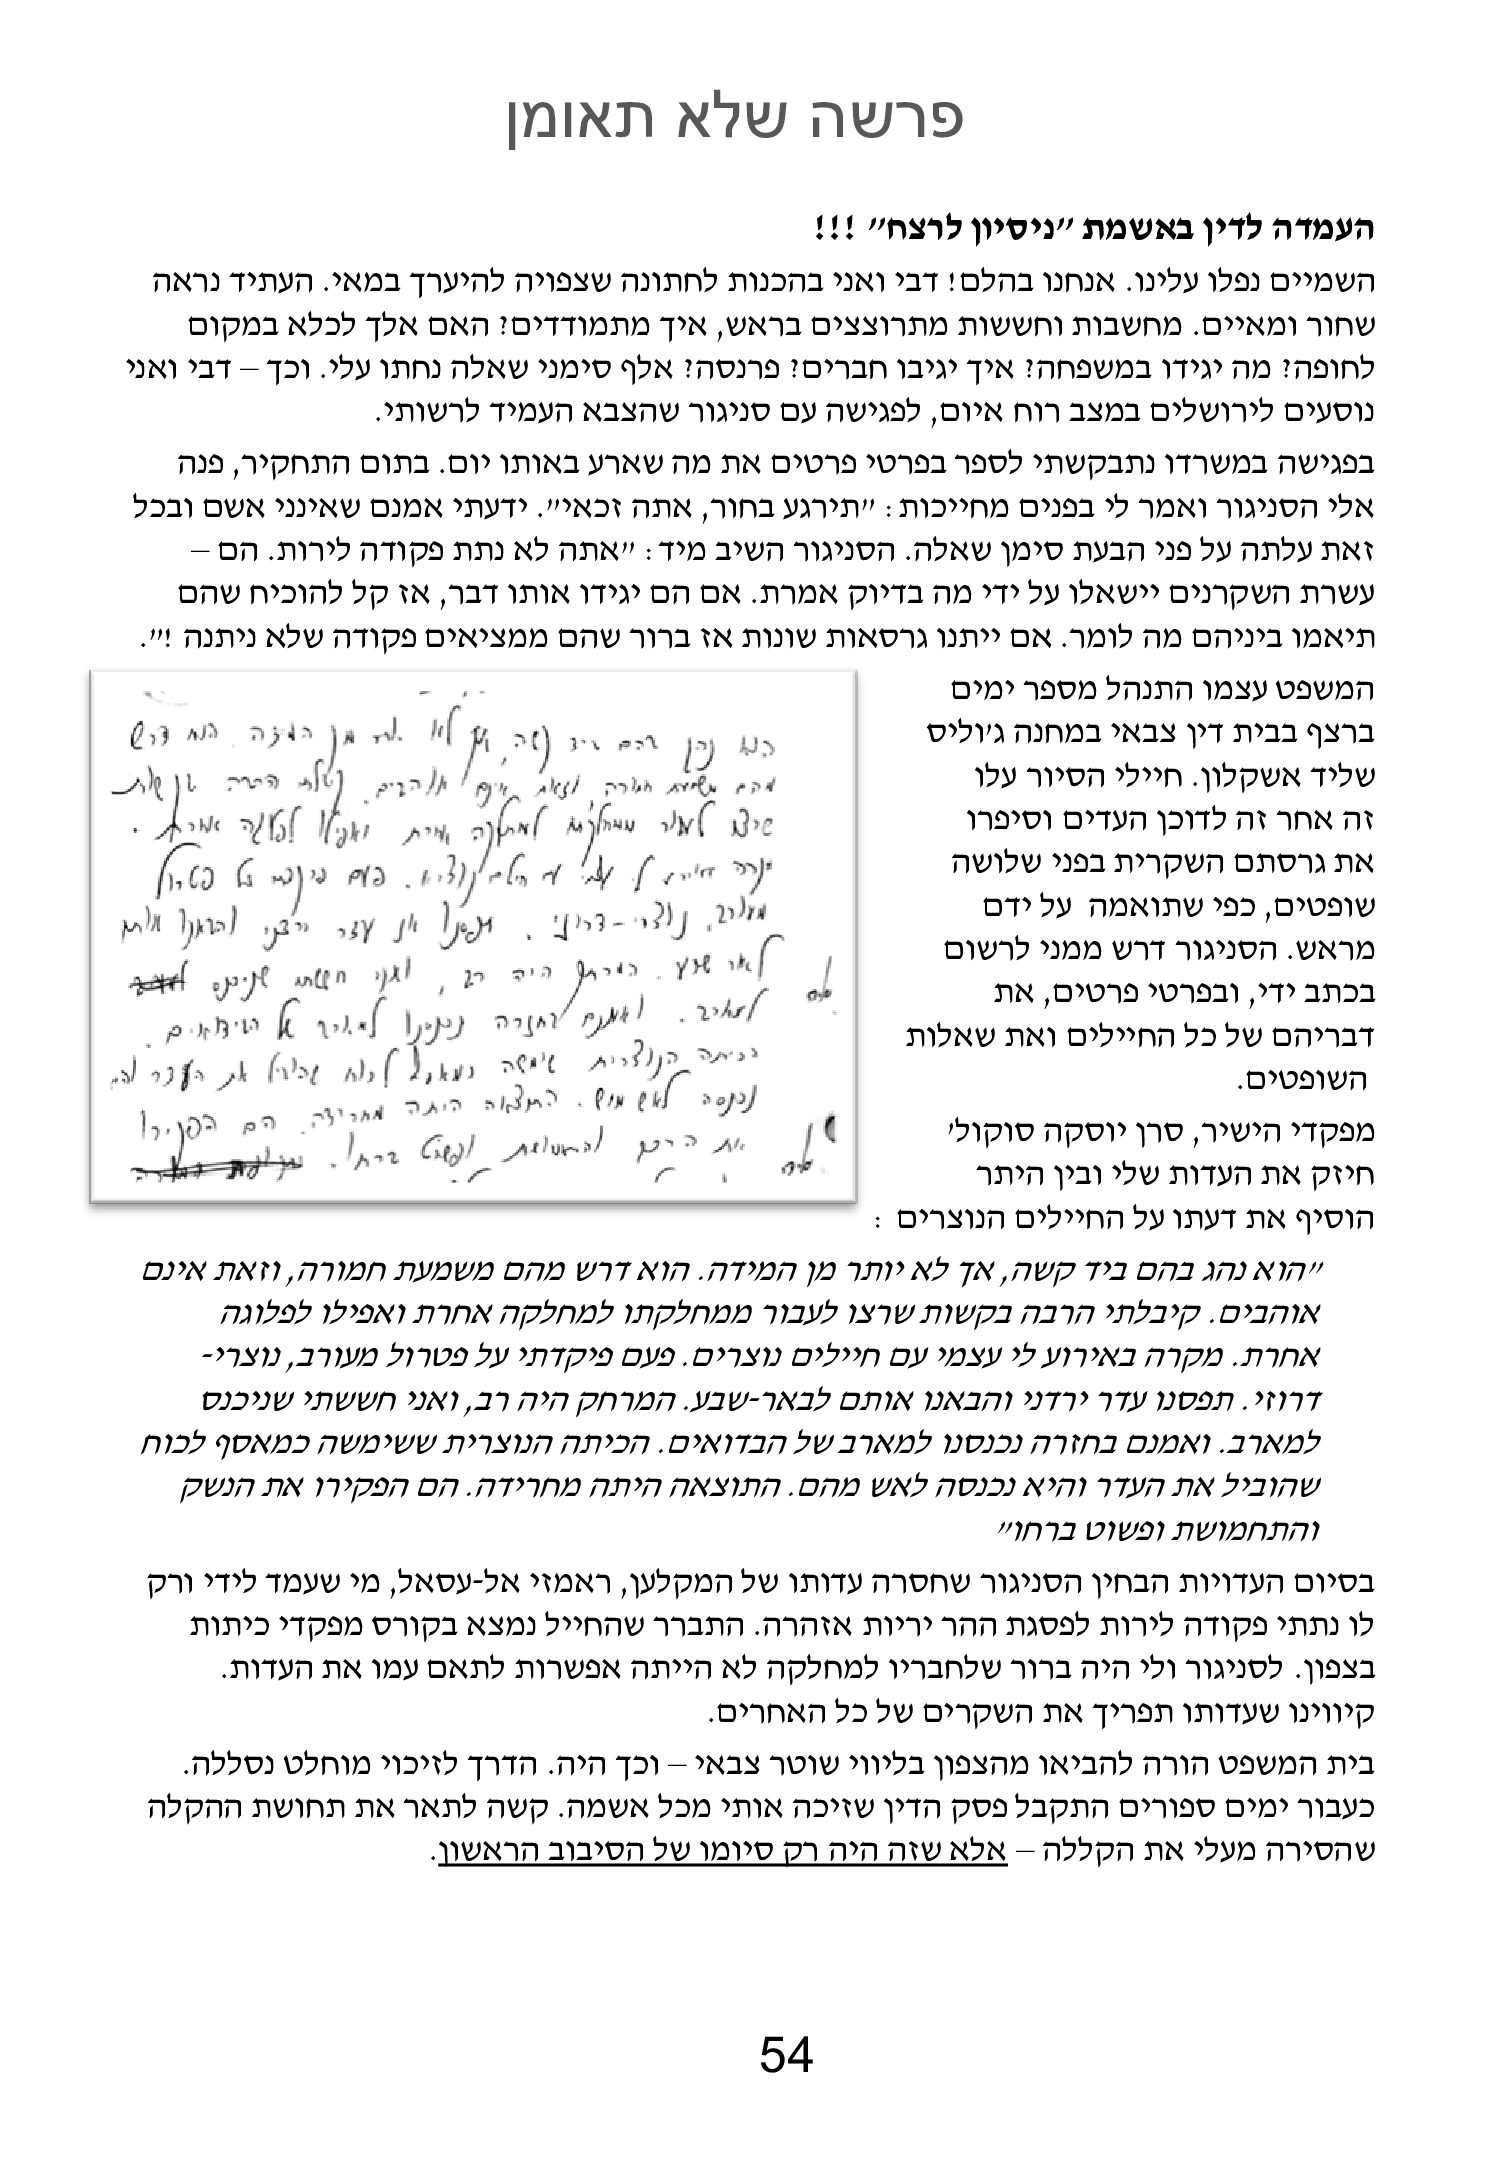 פרשה שלא תאומן
העמדה לדין באשמת "ניסיון לרצח" !!!
השמיים נפלו עלינו. אנחנו בהלם! דבי ואני בהכנות לחתונה שצפויה להיערך במאי. העתיד נראה
שחור ומאיים. מחשבות וחששות מתרוצצים בראש, איך מתמודדים? האם אלך לכלא במקום
לחופה? מה יגידו במשפחה? איך יגיבו חברים? פרנסה? אלף סימני שאלה נחתו עלי. וכך – דבי ואני
נוסעים לירושלים במצב רוח איום, לפגישה עם סניגור שהצבא העמיד לרשותי.
בפגישה במשרדו נתבקשתי לספר בפרטי פרטים את מה שארע באותו יום. בתום התחקיר, פנה
אלי הסניגור ואמר לי בפנים מחייכות: "תירגע בחור, אתה זכאי". ידעתי אמנם שאינני אשם ובכל
זאת עלתה על פני הבעת סימן שאלה. הסניגור השיב מיד: "אתה לא נתת פקודה לירות. הם –
עשרת השקרנים יישאלו על ידי מה בדיוק אמרת. אם הם יגידו אותו דבר, אז קל להוכיח שהם
תיאמו ביניהם מה לומר. אם ייתנו גרסאות שונות אז ברור שהם ממציאים פקודה שלא ניתנה !".
המשפט עצמו התנהל מספר ימים
ברצף בבית דין צבאי במחנה ג'וליס
שליד אשקלון. חיילי הסיור עלו
זה אחר זה לדוכן העדים וסיפרו
את גרסתם השקרית בפני שלושה
שופטים, כפי שתואמה על ידם
מראש. הסניגור דרש ממני לרשום
בכתב ידי, ובפרטי פרטים, את
דבריהם של כל החיילים ואת שאלות
השופטים.
מפקדי הישיר, סרן יוסקה סוקול'
חיזק את העדות שלי ובין היתר
הוסיף את דעתו על החיילים הנוצרים :
הוא נהג בהם ביד קשה, אך לא יותר מן המידה. הוא דרש
מהם משמעת חמורה וזאת אינם אוהבים. קבלתי הרבה בקשות
שרצו לעבור ממחלקתו למחלקה אחרת ואפילו לפלוגה אחרת.
מקרה אירע לי עצמי עם חילים נוצרים. פעם פיקדתי על פטרול
מעורב, נוצרי-דרוזי. תפסנו עדר ירדני והבאנו אותם
לבאר שבע. המרחק היה רב, ואני חששתי שניכנס
למארב. ואמנם בחזרה נכנסנו למארב של הבידואים.
הכיתה הנוצרית שימשה כמאסף לכוח שהוביל את העדר והיא
נכנסה לאש מהם. התוצאה היתה מחרידה. הם הפקירו
את הנשק והתחמושת ופשוט ברחו.
"הוא נהג בהם ביד קשה, אך לא יותר מן המידה. הוא דרש מהם משמעת חמורה, וזאת אינם
אוהבים. קיבלתי הרבה בקשות שרצו לעבור ממחלקתו למחלקה אחרת ואפילו לפלוגה
אחרת. מקרה באירוע לי עצמי עם חיילים נוצרים. פעם פיקדתי על פטרול מעורב, נוצרי-
דרוזי. תפסנו עדר ירדני והבאנו אותם לבאר-שבע. המרחק היה רב, ואני חששתי שניכנס
למארב. ואמנם בחזרה נכנסנו למארב של הבדואים. הכיתה הנוצרית ששימשה כמאסף לכוח
שהוביל את העדר והיא נכנסה לאש מהם. התוצאה היתה מחרידה. הם הפקירו את הנשק
והתחמושת ופשוט ברחו"
בסיום העדויות הבחין הסניגור שחסרה עדותו של המקלען, ראמזי אל-עסאל, מי שעמד לידי ורק
לו נתתי פקודה לירות לפסגת ההר יריות אזהרה. התברר שהחייל נמצא בקורס מפקדי כיתות
בצפון. לסניגור ולי היה ברור שלחבריו למחלקה לא הייתה אפשרות לתאם עמו את העדות.
קיווינו שעדותו תפריך את השקרים של כל האחרים.
בית המשפט הורה להביאו מהצפון בליווי שוטר צבאי – וכך היה. הדרך לזיכוי מוחלט נסללה.
כעבור ימים ספורים התקבל פסק הדין שזיכה אותי מכל אשמה. קשה לתאר את תחושת ההקלה
שהסירה מעלי את הקללה – אלא שזה היה רק סיומו של הסיבוב הראשון.
54